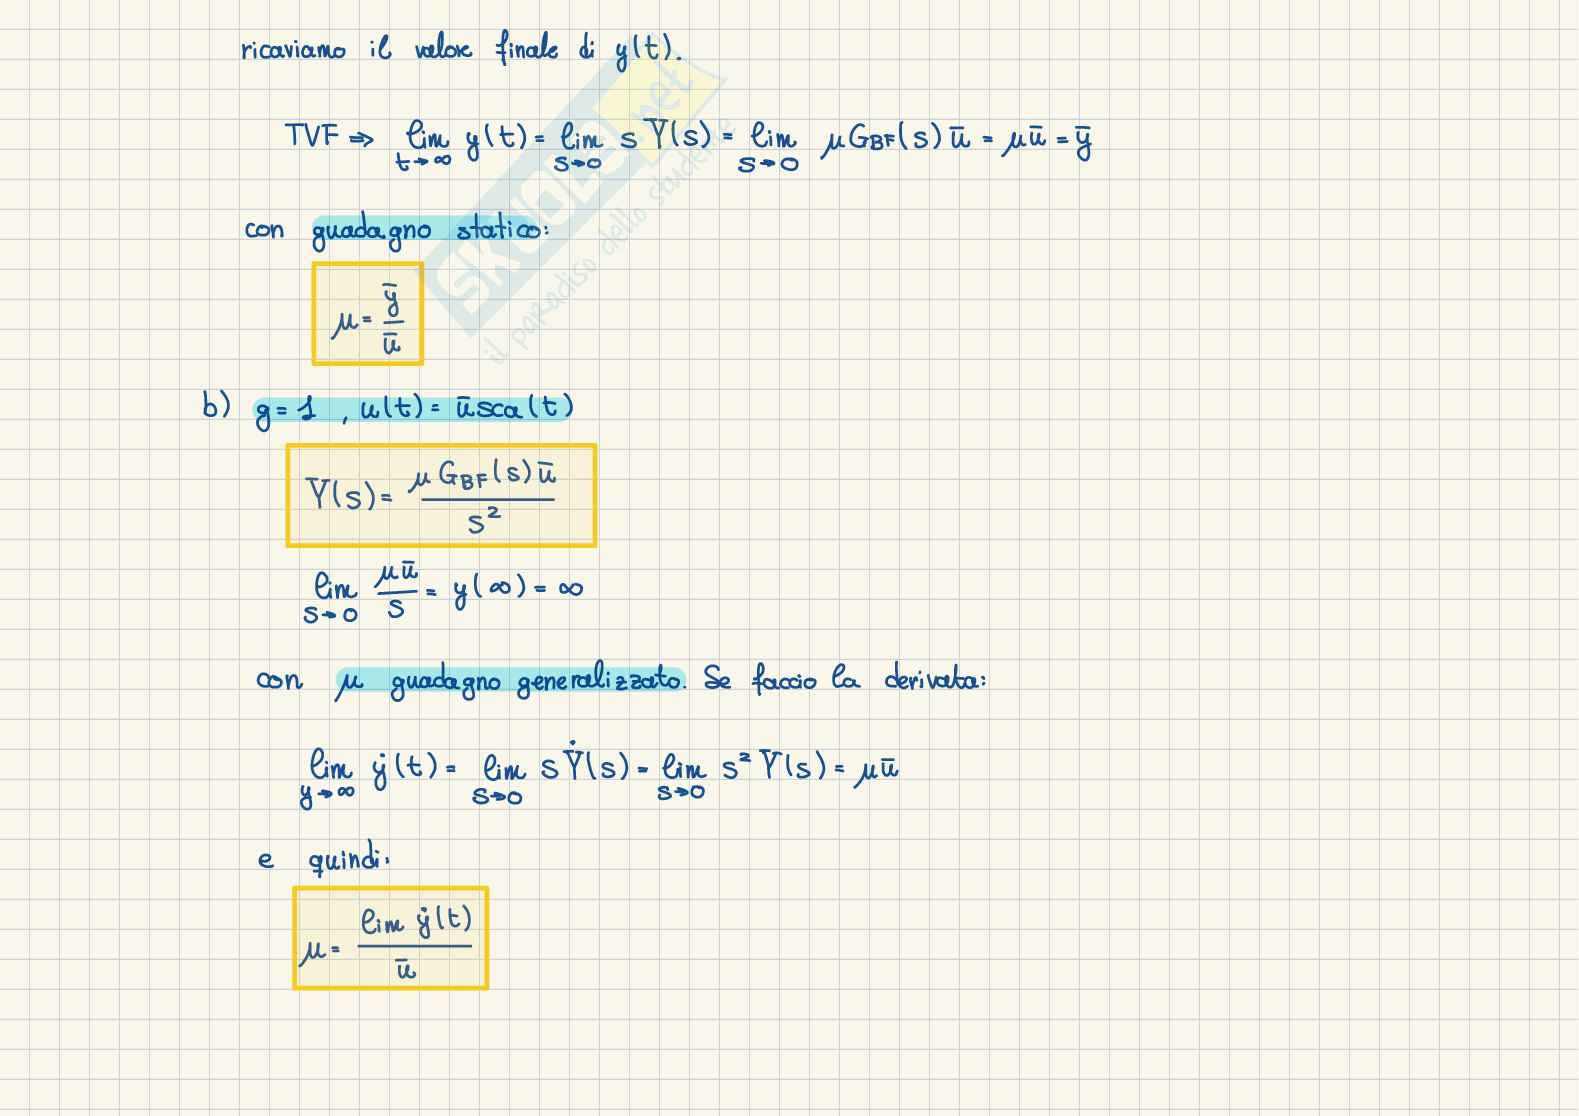 ricaviamo il valore finale di y(t).
TVF ⇒ lim t→∞ y(t) = lim s→0 s Y(s) = lim s→0 μ G_BF(s) ū = μū = ȳ
con guadagno statico:
μ = ȳ / ū
b) g = 1 , u(t) = ū sca(t)
Y(s) = μ G_BF(s) ū / s²
lim s→0 μū / s = y(∞) = ∞
con μ guadagno generalizzato. Se faccio la derivata:
lim y→∞ ẏ(t) = lim s→0 s Ẏ(s) = lim s→0 s² Y(s) = μū
e quindi:
μ = lim ẏ(t) / ū
SKUOLA.net
il paradiso dello studente